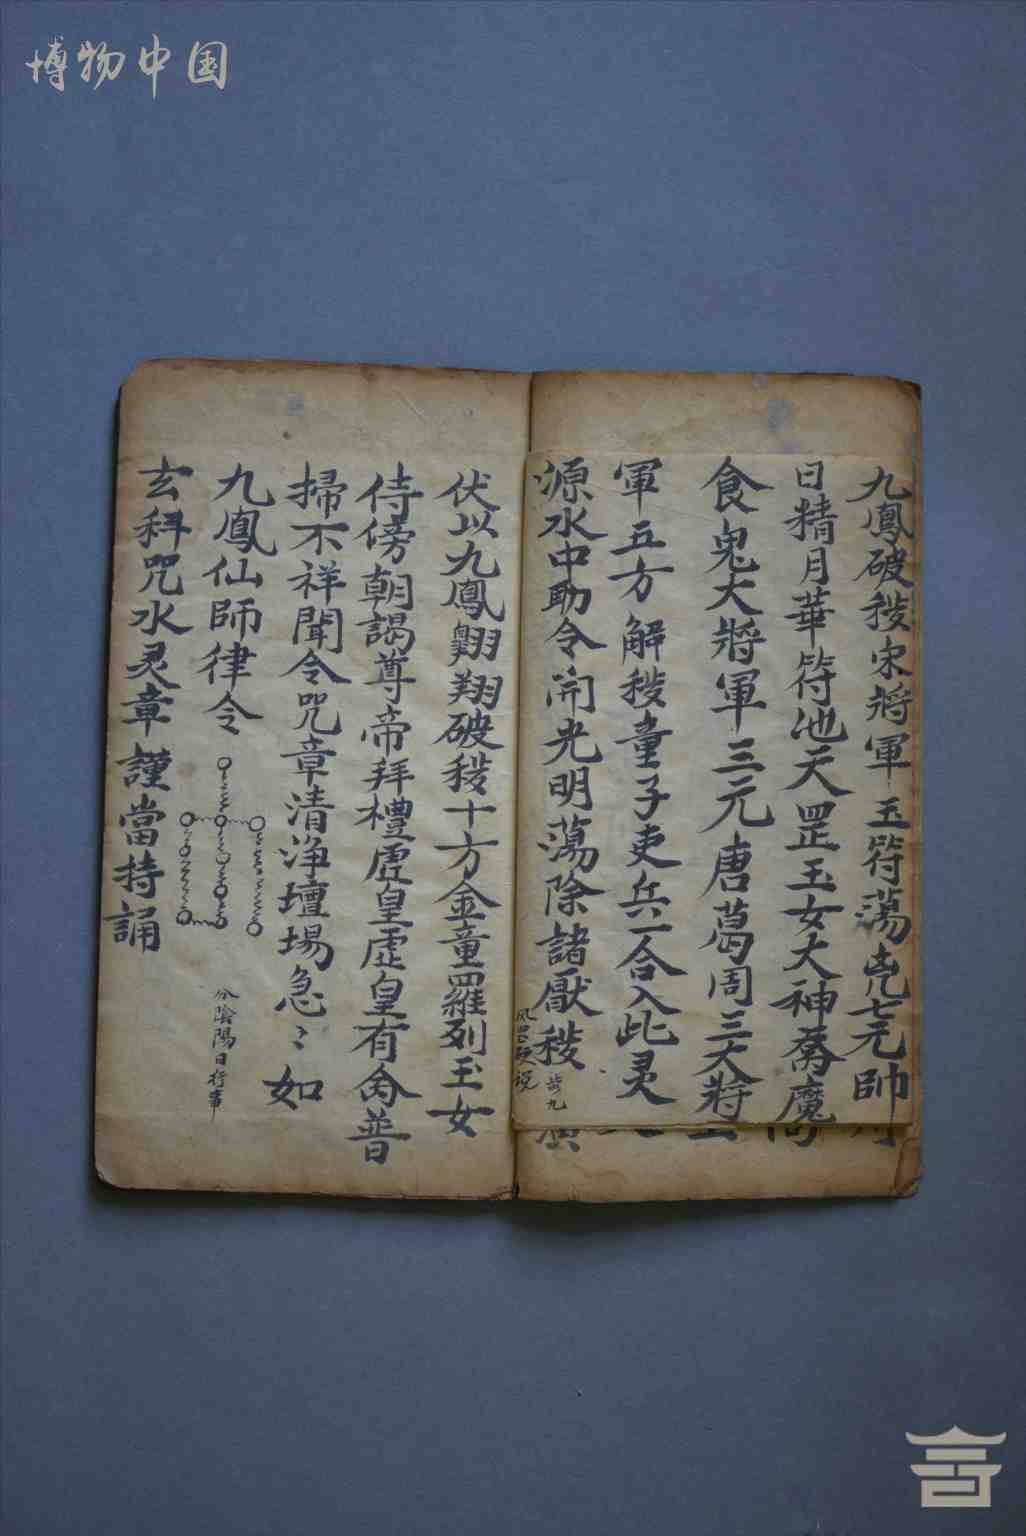 博物中国
九鳳破穢宋將軍玉符蕩兇七元帥
日精月華符池天罡玉女大神喬魔
食鬼大將軍三元唐葛周三大將
軍五方解穢童子吏兵一合入此灵
源水中助令開光明蕩除諸厭穢
步九
伏以九鳳翱翔破穢十方金童羅列玉女
侍傍朝謁尊帝拜禮虛皇虛皇有命普
掃不祥聞令咒章清净壇場急〻如
九鳳仙師律令
分陰陽日行事
玄科咒水灵章謹當持誦